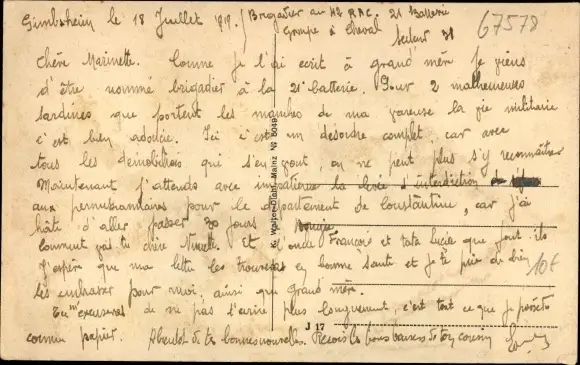 Gimbsheim le 18 Juillet 1919. / Brigadier au 42 RAC. 21 Batterie
Groupe à Cheval
Secteur 38
67578
Chère Marinette. Comme je l'ai ecrit à grand' mère je viens
d'être nommé brigadier à la 21e batterie. Pour 2 malheureuses
sardines que portent les manches de ma vareuse la vie militaire
c'est bien adoucie. Ici c'est un desordre complet, car avec
tous les démobilisés qui s'en vont, on ne peut plus s'y reconnaître
Maintenant j'attends avec impatience la levée d'interdiction
aux permissionnaires pour le département de Constantine, car j'ai
hâte d'aller passer 30 jours
Comment vas tu chère Ninette. Et l'oncle François et tata Lucie que font-ils
J'espère que ma lettre les trouvera en bonne santé et je te prie de bien
les embrasser pour moi, ainsi que grand' mère.
10f
Tu m'excuseras de ne pas t'écrire plus longuement, c'est tout ce que je possède
comme papier. A bientôt de tes bonnes nouvelles. Reçois les bons baisers de ton cousin
K. Walter-Diehl, Mainz No 6049
J 17